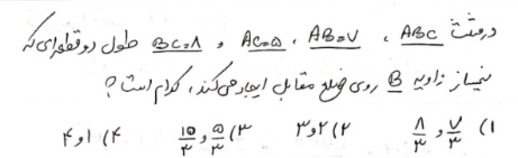 در مثلث ABC ، AB=۷ ، AC=۵ و BC=۸ طول دو قطعه‌ای که
نیمساز زاویه B روی ضلع مقابل ایجاد می‌کند، کدام است؟
۱) ۷/۳ و ۸/۳ ۲) ۲ و ۳ ۳) ۵/۳ و ۱۰/۳ ۴) ۱ و ۴